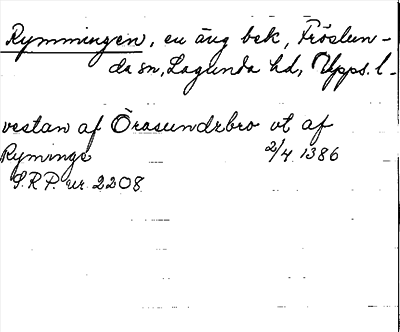 Rymmingen, en äng bek, Fröslun-
da sn, Lagunda hd, Upps. l.
vestan af Örasundzbro vt af
Ryminge 2/4 1386
S.R.P. nr 2208